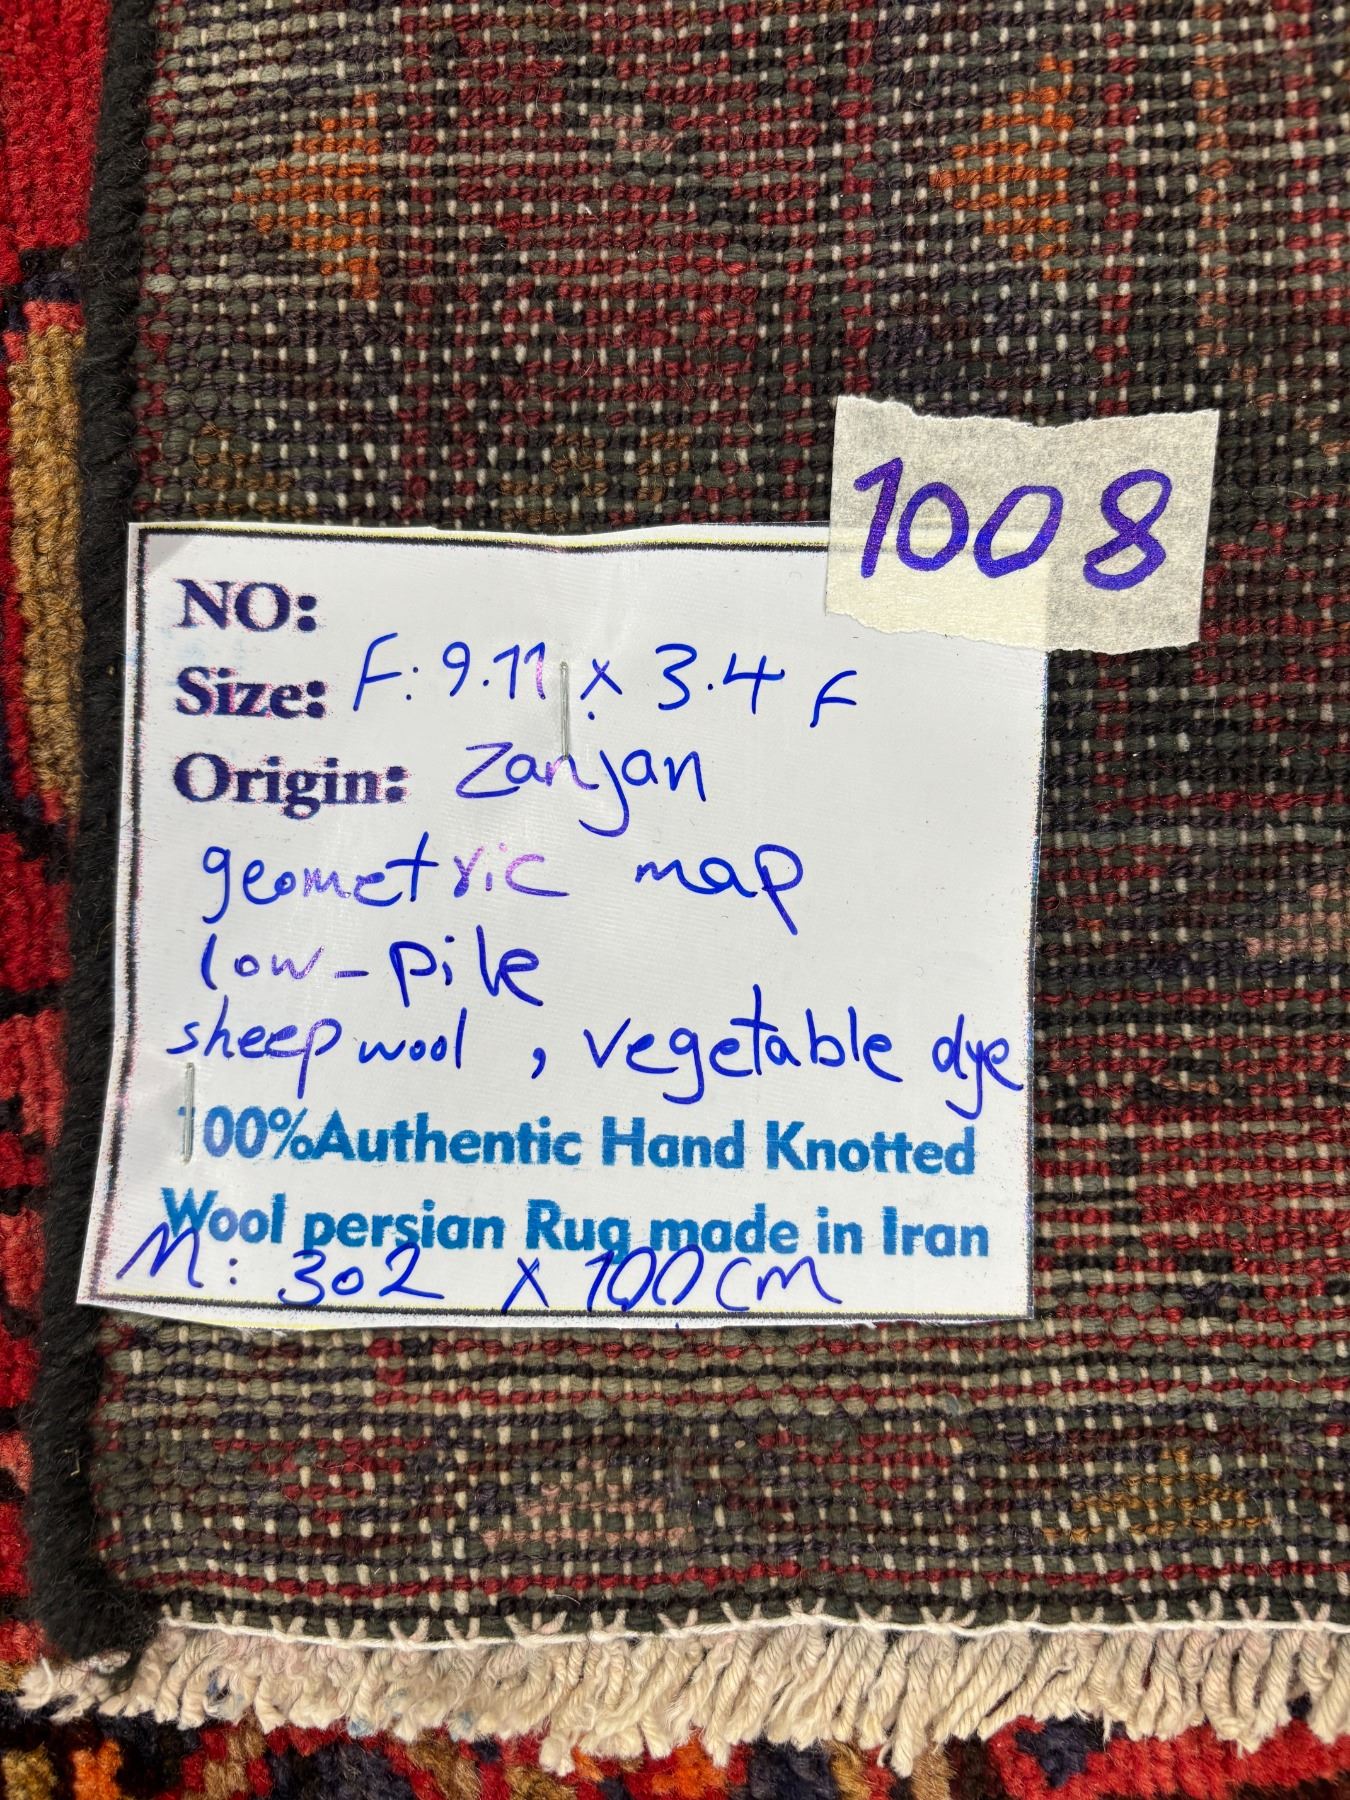 1008
NO:
Size: F: 9.11 x 3.4 F
Origin: Zanjan
geometric map
low-pile
sheep wool, vegetable dye
100%Authentic Hand Knotted
Wool persian Rug made in Iran
M: 302 x 100 cm